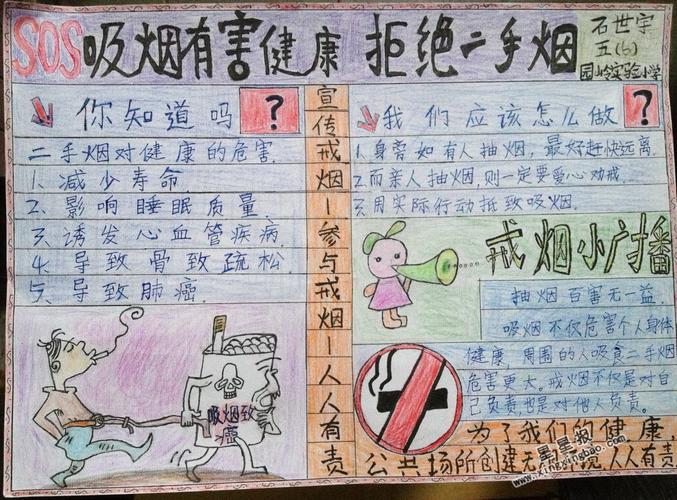 SOS吸烟有害健康 拒绝二手烟
石世宇
五(6)
园岭实验小学
你知道吗?
二手烟对健康的危害.
1.减少寿命.
2.影响睡眠质量.
3.诱发心血管疾病.
4.导致骨致疏松.
5.导致肺癌.
吸烟致
癌
宣传戒烟—参与戒烟—人人有责
我们应该怎么做?
1.身旁如有人抽烟,最好赶快远离.
2.而亲人抽烟,则一定要爱心劝戒.
3.用实际行动抵致吸烟.
戒烟小广播
抽烟百害无一益.
吸烟不仅危害个人身体
健康,周围的人吸食二手烟
危害更大。戒烟不仅是对自
己负责,也是对他人负责.
为了我们的健康,
公共场所创建无烟环境,人人有责
星星报
www.xingxingbao.com